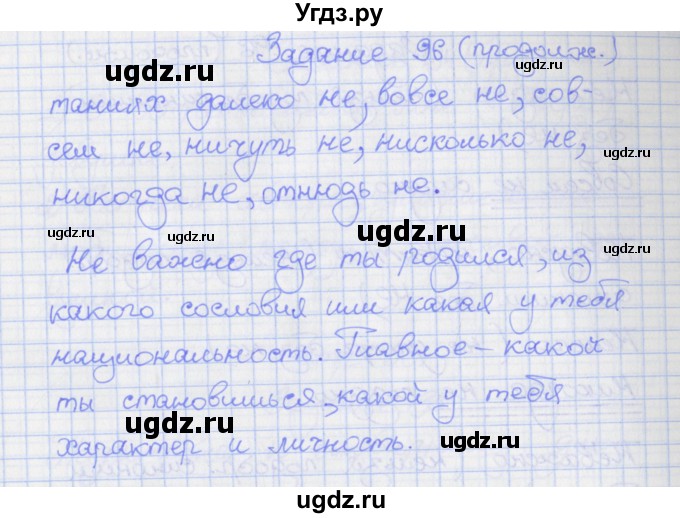 Угдз.ру
Задание 96 (продолж.)
ugdz.ru
ugdz.ru
таниях далеко не, вовсе не, сов-
ugdz.ru
сем не, ничуть не, нисколько не,
ugdz.ru
никогда не, отнюдь не.
ugdz.ru ugdz.ru ugdz.ru ugdz.ru
Не важено где ты родился, из
какого сословия или какая у тебя
ugdz.ru
национальность. Главное – какой
ugdz.ru
ты становишься, какой у тебя
ugdz.ru ugdz.ru
характер и личность.
ugdz.ru
ugdz.ru
ugdz.ru